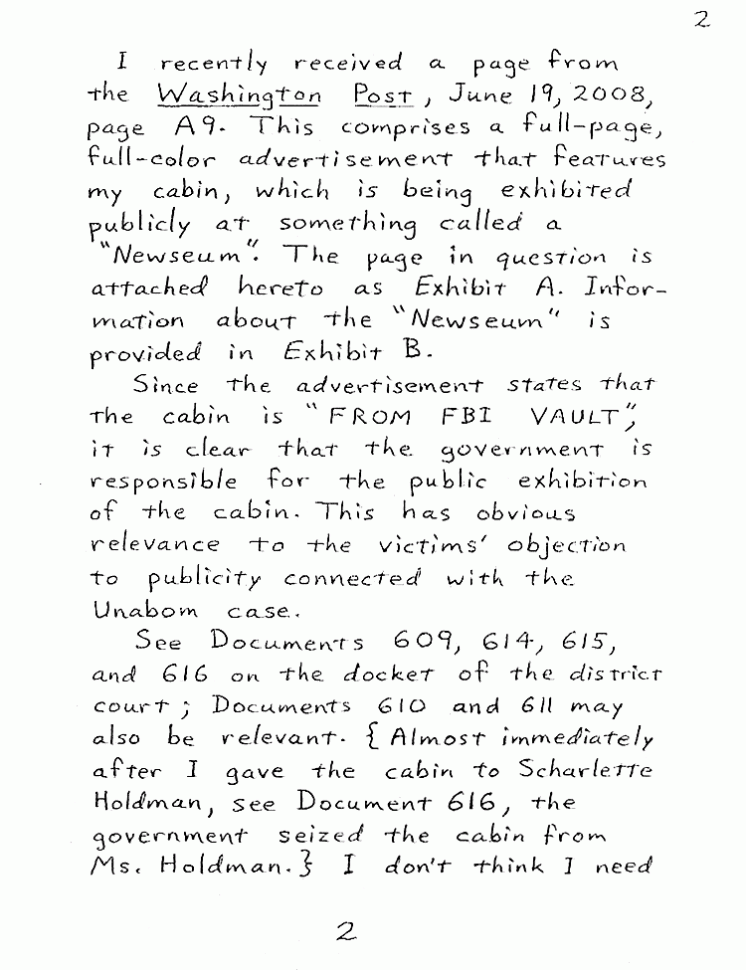 2
I recently received a page from
the Washington Post, June 19, 2008,
page A9. This comprises a full-page,
full-color advertisement that features
my cabin, which is being exhibited
publicly at something called a
"Newseum". The page in question is
attached hereto as Exhibit A. Infor-
mation about the "Newseum" is
provided in Exhibit B.
Since the advertisement states that
the cabin is "FROM FBI VAULT",
it is clear that the government is
responsible for the public exhibition
of the cabin. This has obvious
relevance to the victims' objection
to publicity connected with the
Unabom case.
See Documents 609, 614, 615,
and 616 on the docket of the district
court; Documents 610 and 611 may
also be relevant. {Almost immediately
after I gave the cabin to Scharlette
Holdman, see Document 616, the
government seized the cabin from
Ms. Holdman.} I don't think I need
2